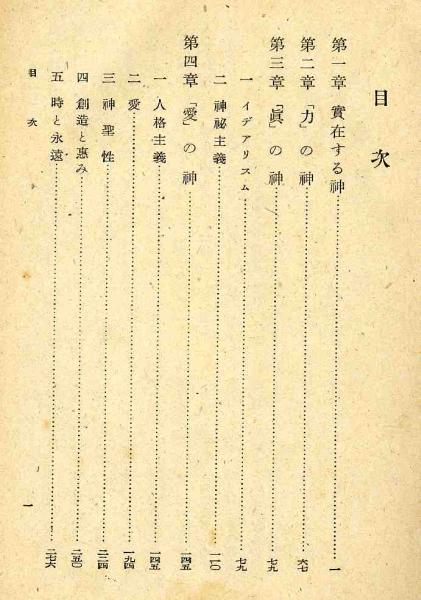 目次
第一章 實在する神……一
第二章 「力」の神……六七
第三章 「眞」の神……七九
一 イデアリスム……七九
二 神祕主義……一一〇
第四章 「愛」の神……一四五
一 人格主義……一四五
二 愛……一九四
三 神聖性……二三四
四 創造と惠み……二五〇
五 時と永遠……二七六
目次
一